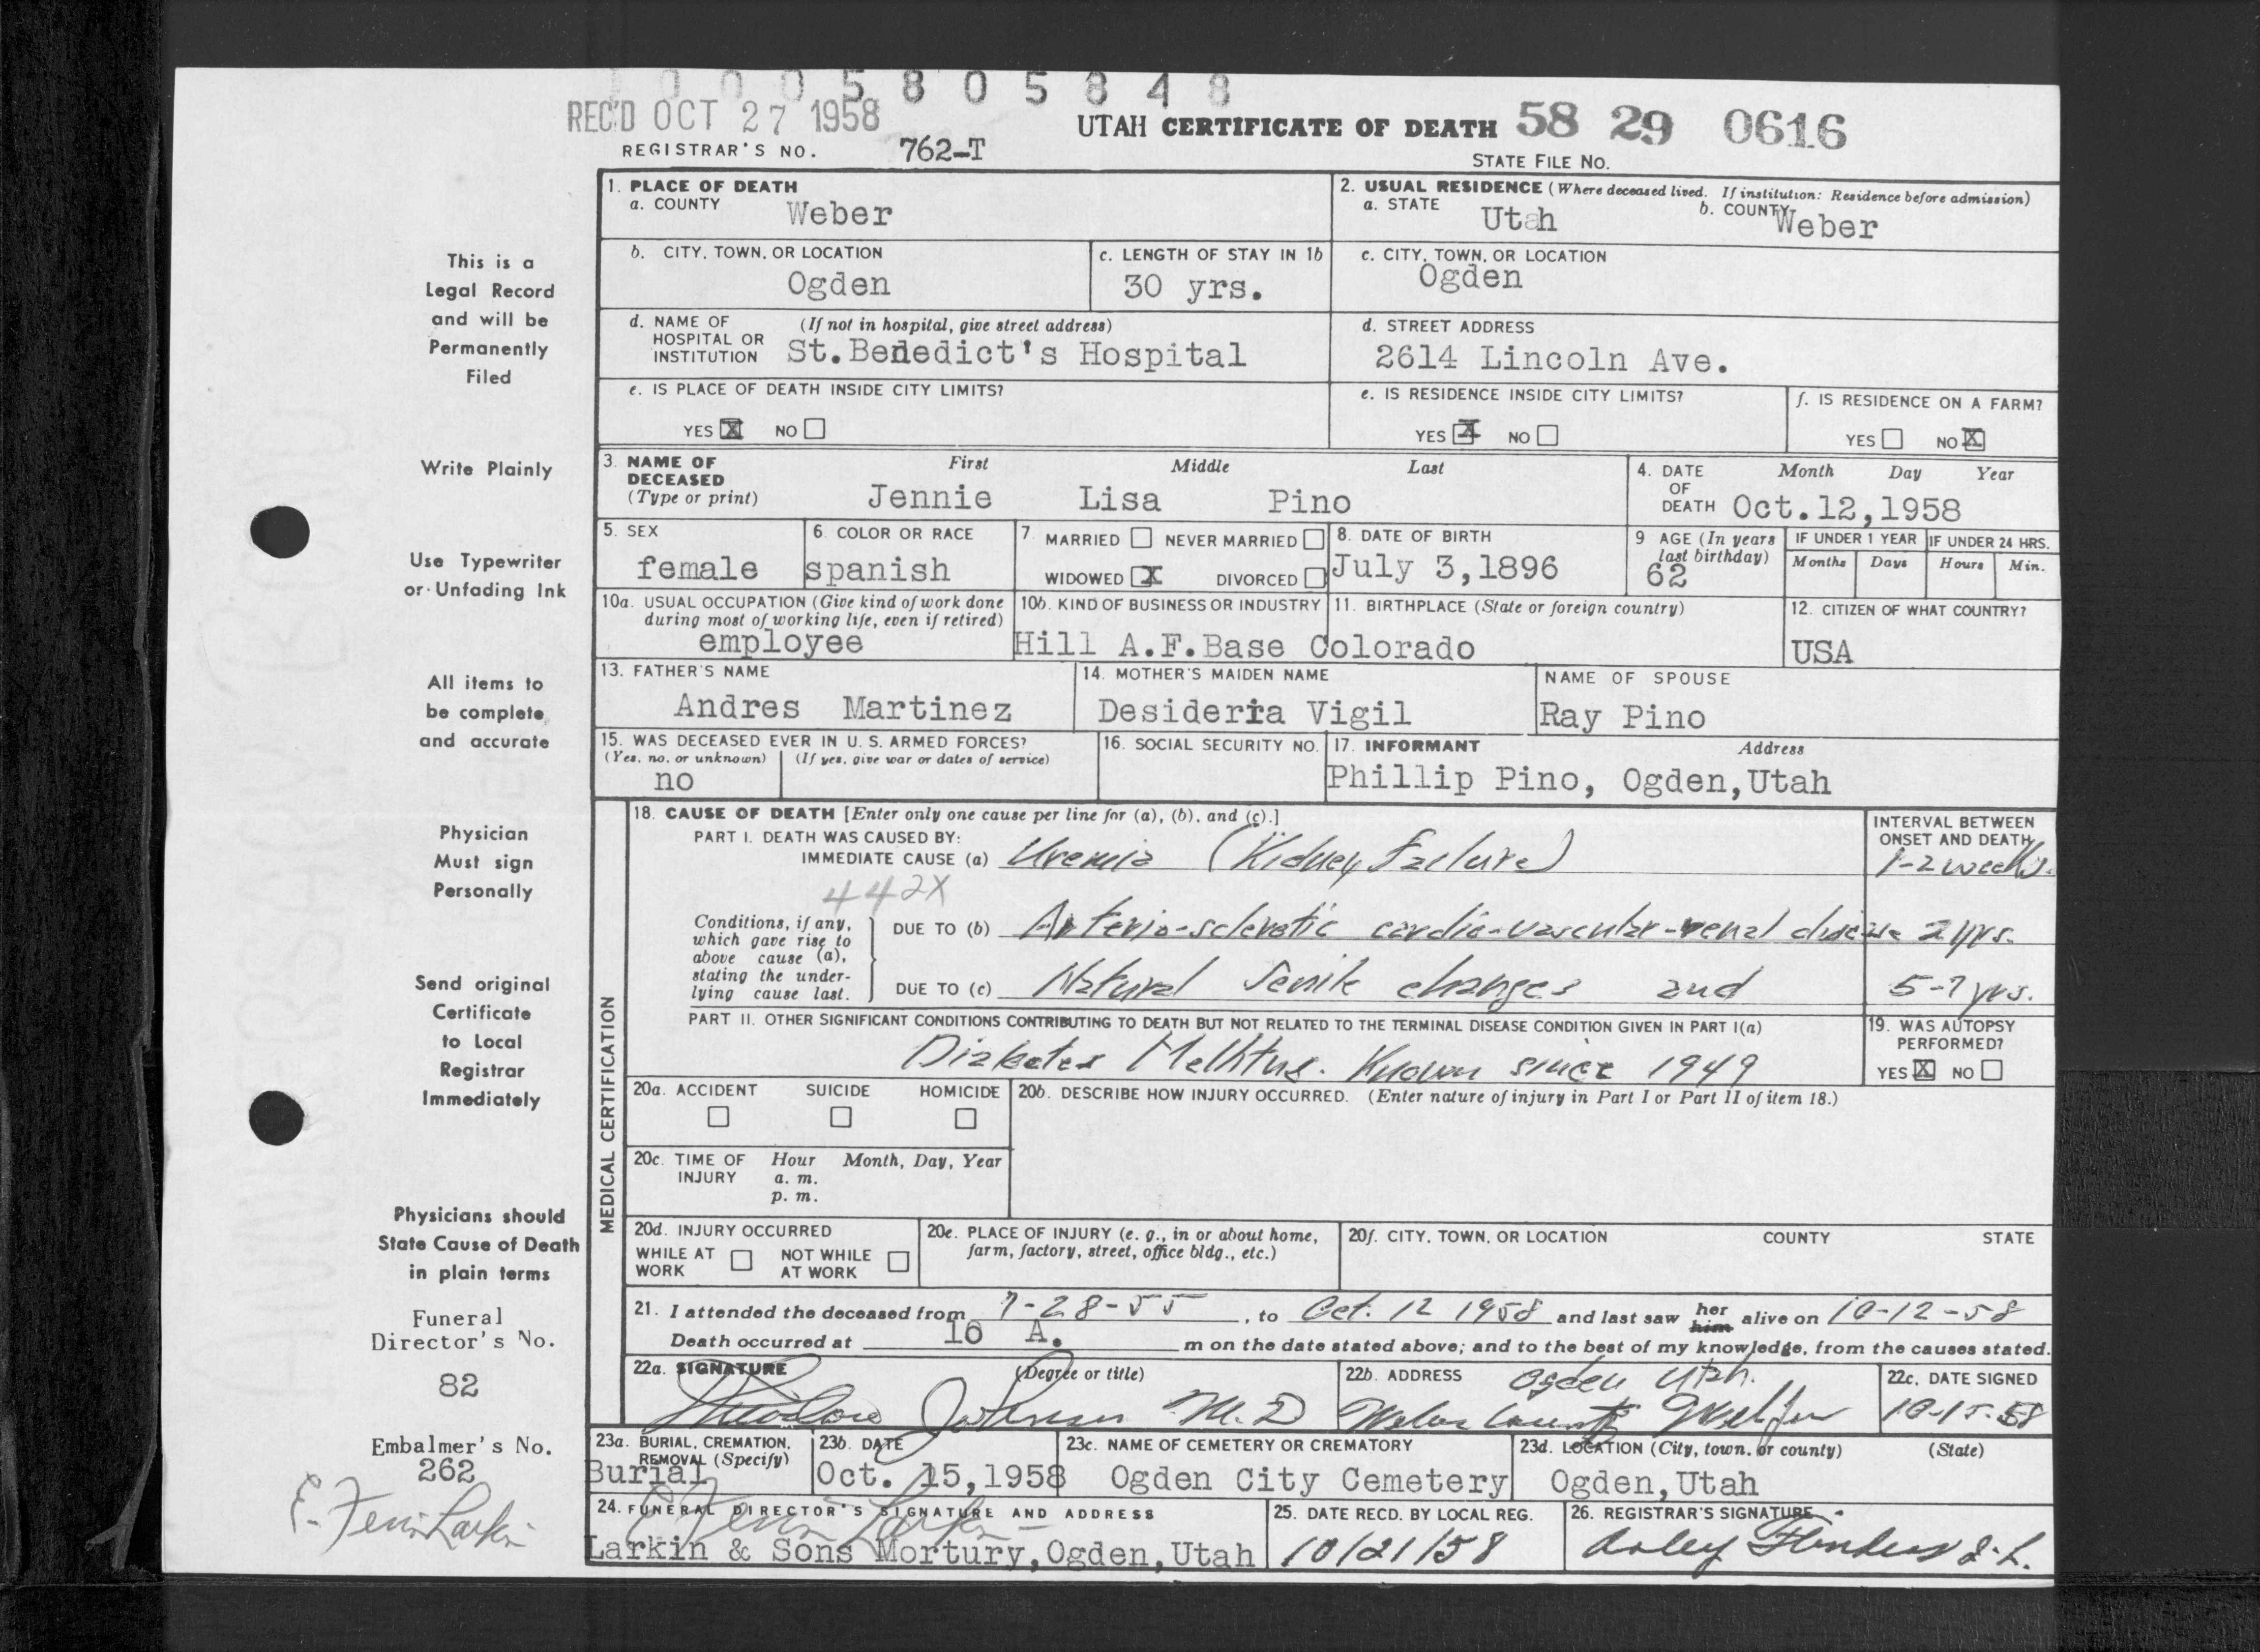 10005805848
REC'D OCT 27 1958
UTAH CERTIFICATE OF DEATH 58 29 0616
REGISTRAR'S NO. 762-T
STATE FILE NO.
This is a
Legal Record
and will be
Permanently
Filed
Write Plainly
Use Typewriter
or Unfading Ink
All items to
be complete
and accurate
Physician
Must sign
Personally
Send original
Certificate
to Local
Registrar
Immediately
Physicians should
State Cause of Death
in plain terms
Funeral
Director's No.
82
Embalmer's No.
262
E. Ferrin Larkin
1. PLACE OF DEATH
a. COUNTY Weber
2. USUAL RESIDENCE (Where deceased lived. If institution: Residence before admission)
a. STATE Utah b. COUNTY Weber
b. CITY, TOWN, OR LOCATION Ogden
c. LENGTH OF STAY IN 1b 30 yrs.
c. CITY, TOWN, OR LOCATION Ogden
d. NAME OF HOSPITAL OR INSTITUTION (If not in hospital, give street address) St.Benedict's Hospital
d. STREET ADDRESS 2614 Lincoln Ave.
e. IS PLACE OF DEATH INSIDE CITY LIMITS?
YES X NO
e. IS RESIDENCE INSIDE CITY LIMITS?
YES X NO
f. IS RESIDENCE ON A FARM?
YES NO X
3. NAME OF DECEASED (Type or print) First Middle Last
Jennie Lisa Pino
4. DATE OF DEATH Month Day Year
Oct.12,1958
5. SEX female
6. COLOR OR RACE spanish
7. MARRIED NEVER MARRIED
WIDOWED X DIVORCED
8. DATE OF BIRTH July 3,1896
9 AGE (In years last birthday) 62
IF UNDER 1 YEAR Months Days
IF UNDER 24 HRS. Hours Min.
10a. USUAL OCCUPATION (Give kind of work done during most of working life, even if retired) employee
10b. KIND OF BUSINESS OR INDUSTRY Hill A.F.Base
11. BIRTHPLACE (State or foreign country) Colorado
12. CITIZEN OF WHAT COUNTRY? USA
13. FATHER'S NAME Andres Martinez
14. MOTHER'S MAIDEN NAME Desideria Vigil
NAME OF SPOUSE Ray Pino
15. WAS DECEASED EVER IN U. S. ARMED FORCES?
(Yes, no, or unknown) (If yes, give war or dates of service)
no
16. SOCIAL SECURITY NO.
17. INFORMANT Address
Phillip Pino, Ogden,Utah
MEDICAL CERTIFICATION
18. CAUSE OF DEATH [Enter only one cause per line for (a), (b), and (c).]
INTERVAL BETWEEN ONSET AND DEATH
PART I. DEATH WAS CAUSED BY:
IMMEDIATE CAUSE (a) Uremia (Kidney Failure) 1-2 weeks.
442X
Conditions, if any, which gave rise to above cause (a), stating the underlying cause last.
DUE TO (b) Arterio-sclerotic cardio-vascular-renal disease 2 yrs.
DUE TO (c) Natural Senile changes and 5-7 yrs.
PART II. OTHER SIGNIFICANT CONDITIONS CONTRIBUTING TO DEATH BUT NOT RELATED TO THE TERMINAL DISEASE CONDITION GIVEN IN PART I(a)
Diabetes Mellitus. Known since 1949
19. WAS AUTOPSY PERFORMED?
YES X NO
20a. ACCIDENT SUICIDE HOMICIDE
20b. DESCRIBE HOW INJURY OCCURRED. (Enter nature of injury in Part I or Part II of item 18.)
20c. TIME OF INJURY Hour Month, Day, Year
a. m.
p. m.
20d. INJURY OCCURRED
WHILE AT WORK NOT WHILE AT WORK
20e. PLACE OF INJURY (e. g., in or about home, farm, factory, street, office bldg., etc.)
20f. CITY, TOWN, OR LOCATION COUNTY STATE
21. I attended the deceased from 7-28-55, to Oct. 12 1958 and last saw her him alive on 10-12-58
Death occurred at 10 A. m on the date stated above; and to the best of my knowledge, from the causes stated.
22a. SIGNATURE (Degree or title)
Johnson M. D
22b. ADDRESS Ogden Utah.
Weber County
22c. DATE SIGNED 10-15-58
23a. BURIAL, CREMATION, REMOVAL (Specify) Burial
23b. DATE Oct. 15,1958
23c. NAME OF CEMETERY OR CREMATORY Ogden City Cemetery
23d. LOCATION (City, town, or county) (State)
Ogden,Utah
24. FUNERAL DIRECTOR'S SIGNATURE AND ADDRESS
E Ferrin Larkin
Larkin & Sons Mortury,Ogden,Utah
25. DATE RECD. BY LOCAL REG. 10/21/58
26. REGISTRAR'S SIGNATURE